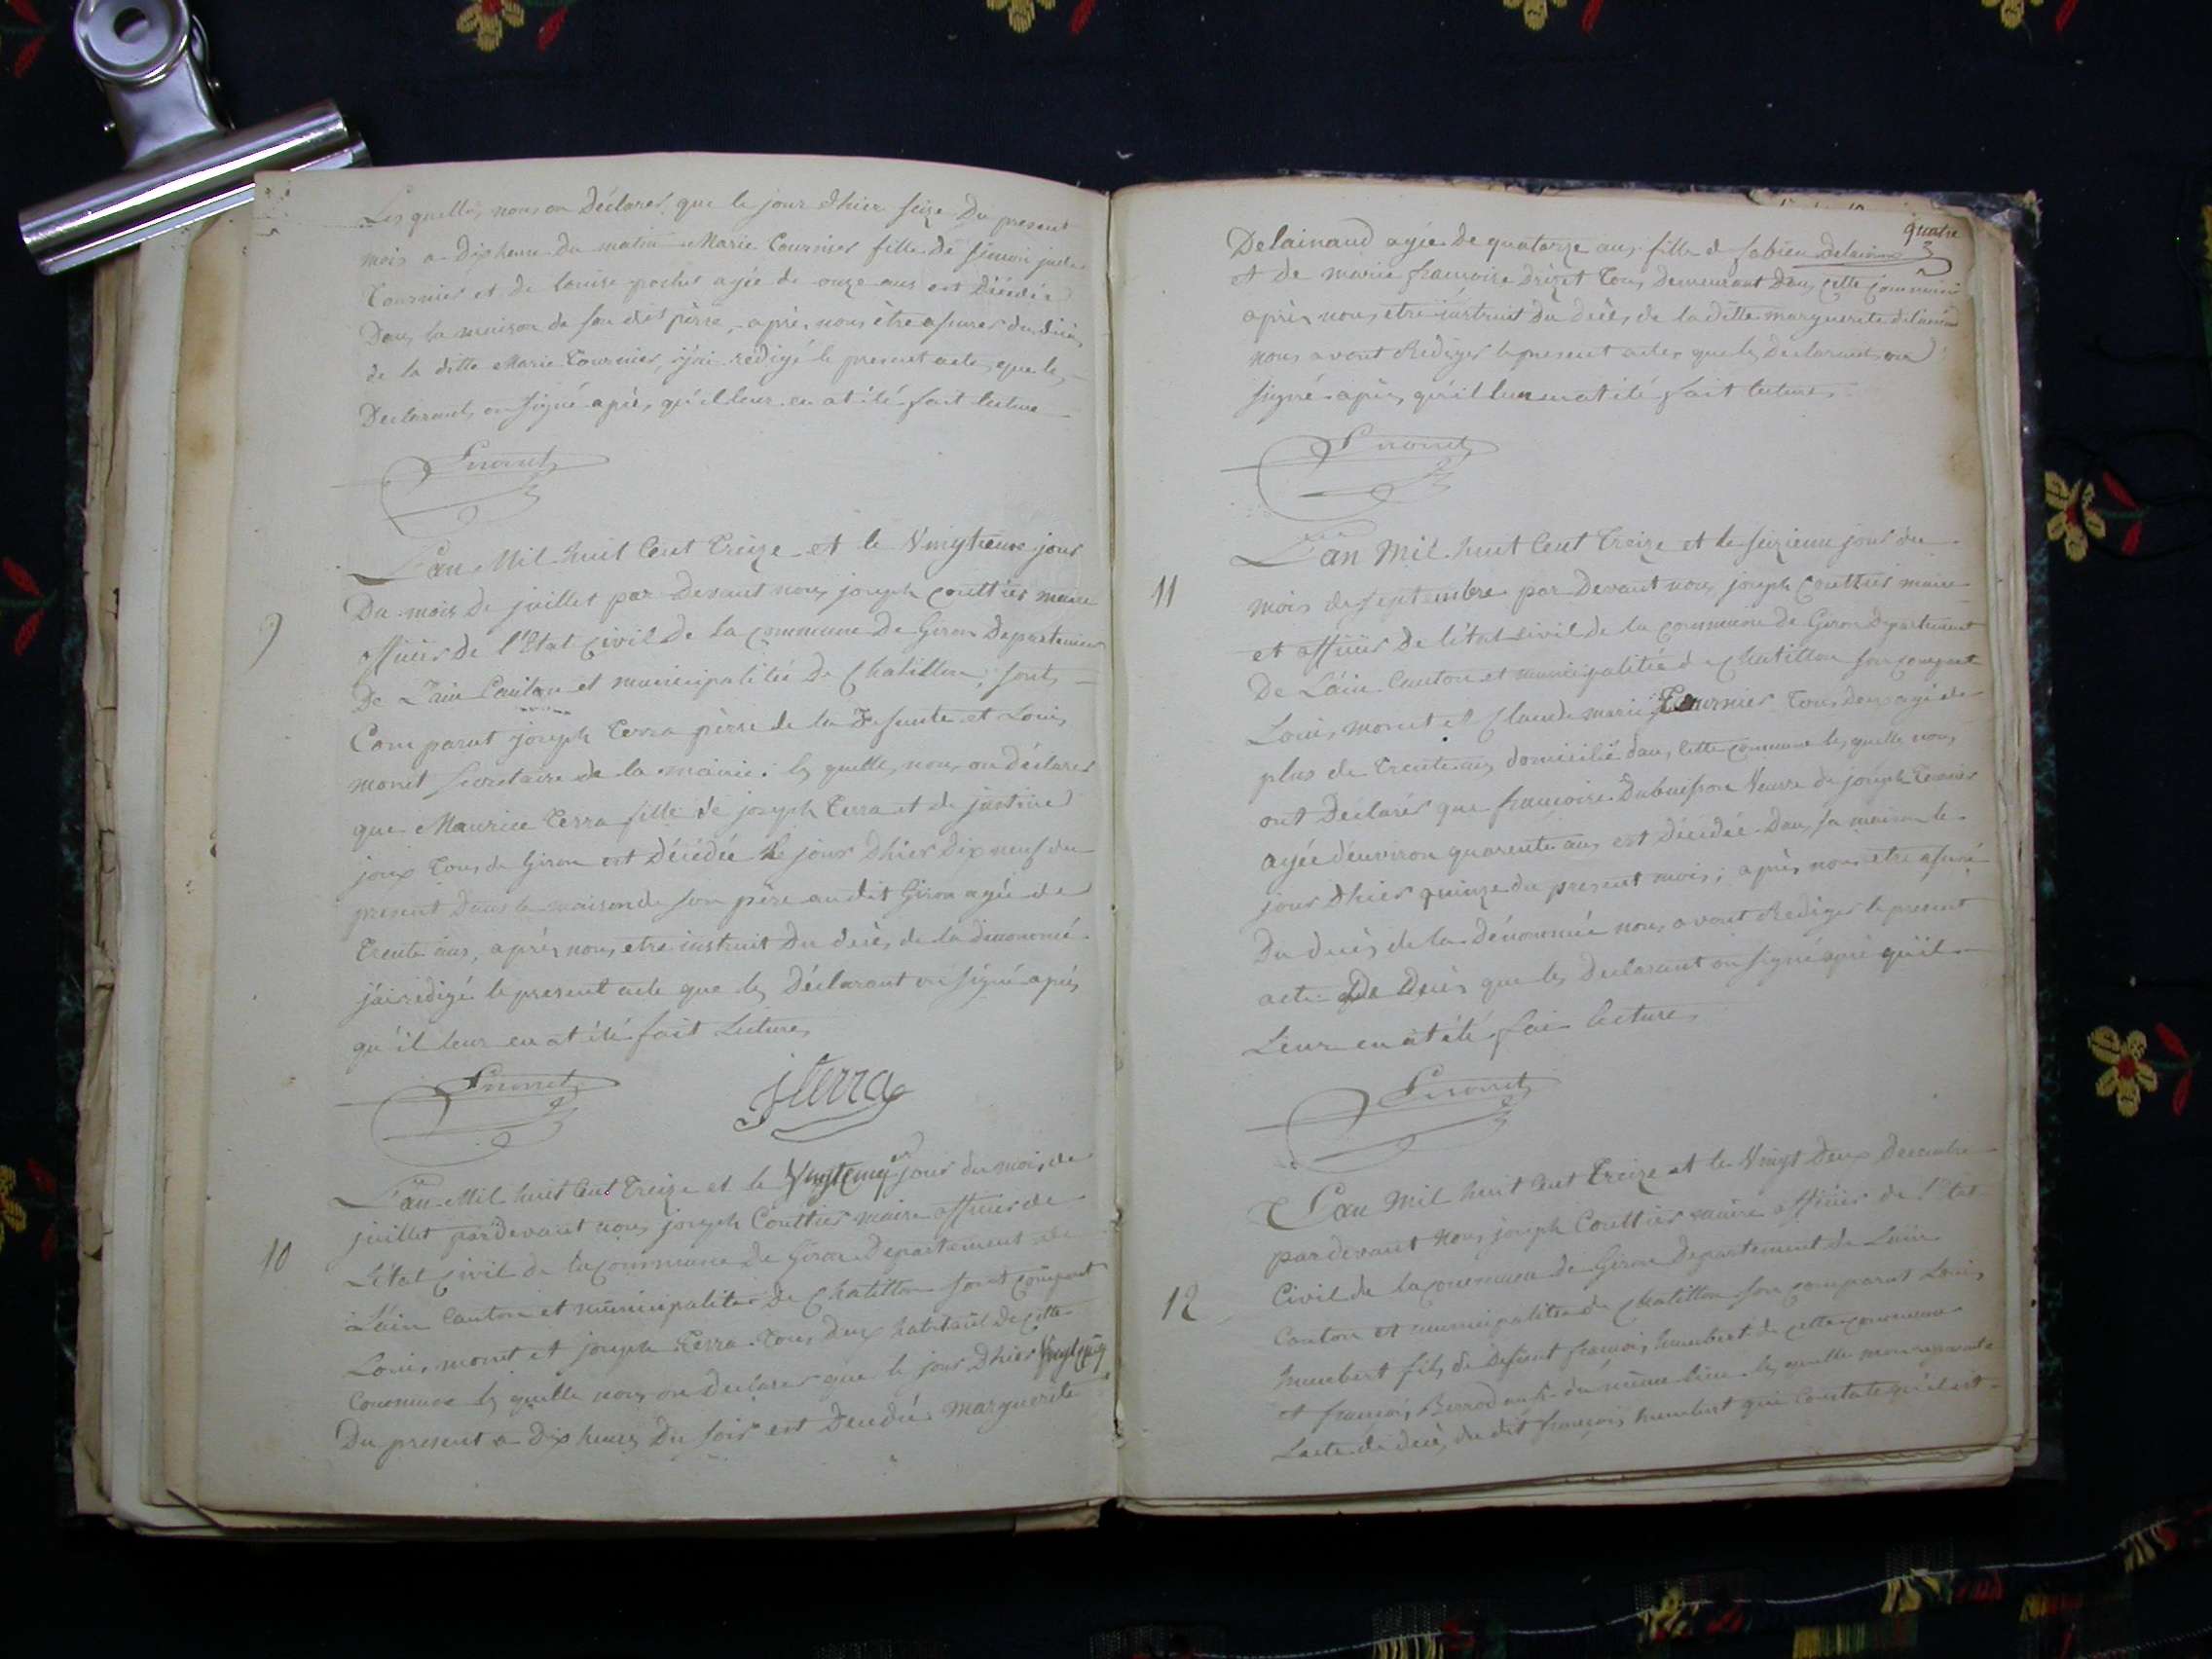 Les quelles nous on Déclarés que le jour d'hier seize Du present
mois a Dix heure du matin Marie Tournier fille De Simon
Tournier et de Louise pochet agée de onze ans est Décédée
Dans la maison de son dit pèrre, après nous être assurer du décès
de la ditte Marie Tournier, j'ai redigé le present acte que les
Declarant on signé après qu'il leur en at été fait lecture
Lmonet
9
L'an Mil huit Cent Treize et le Vingtieme jour
Du mois De juillet par Devant nous joseph Couttier maire
officier de l'Etat Civil De la Commune De Giron Departement
De L'ain Canton et municipalitée De Chatillon, sont
Comparut joseph Terra pèrre de la Defunte et Louis
monet Secretaire de la mairie; les quelle nous on déclarer
que Maurice Terra fille de joseph Terra et de justine
joux Tous de Giron est Décédée le jour D'hier Dix neuf du
present Dans la maison de son père au dit Giron agée de
Trente ans, après nous etre instruit Du decès de la denommé
j'ai redigé le present acte que les Déclarant on signé après
qu'il leur en at été fait Lecture,
Lmonet jterra
10
L'an Mil huit Cent Treize et le Vingt cinq jour du mois de
juillet pardevant nous joseph Couttier maire officier de
L'etat Civil de la Commune de Giron Departement de
L'ain Canton et municipalitée De Chatillon sont comparut
Louis monet et joseph Terra Tous deux habitant De cette
Commune les quelle nous on Declarer que le jour D'hier Vingt cinq
Du present a Dix heures Du soir est Decedée Marguerite
quatre
Delainaud agée de quatorze ans, fille d fabien delainaud
et de marie françoise Drizet Tous Demeurant Dans cette Commune
après nous etre instruit Du decès de la ditte marguerite delainaud
nous avont Rediger le present acte que les Declarant on
signé après qu'il leur en at été fait lecture,
Lmonet
11
L'an Mil huit Cent Treize et le seizieme jour du
mois de septembre par Devant nous joseph Couttier maire
et officier De l'état civil de la commune de Giron Departement
De L'ain Canton et municipalitée de Chatillon son comparut
Louis monet et Claude marie Tournier Tous Deux agé de
plus de Trente ans domicilié dans cette commune les quelle nous
ont Déclarés que françoise Dubuisson Veuve de joseph Tournier
agée d'environ quarente ans est Décédée Dans sa maison le
jour d'hier quinze du present mois; après nous etre assuré
Du decès de la Dénommée nous avont Rediger le present
acte De Decès que les Declarant on signé après qu'il
Leur en at été fai lecture
Lmonet
12
L'an Mil huit Cent Treize et le Vingt Deux Decembre
pardevant Nous joseph Couttier maire officier de l'Etat
Civil de la Commune de Giron Departement de L'ain
Canton et municipalitée de Chatillon son comparut Louis
humbert fils de Defunt françois humbert de cette commune
et françois Berrod aussi du même lieu les quelle
L'acte de decès du dit françois humbert qui Constate qu'il est